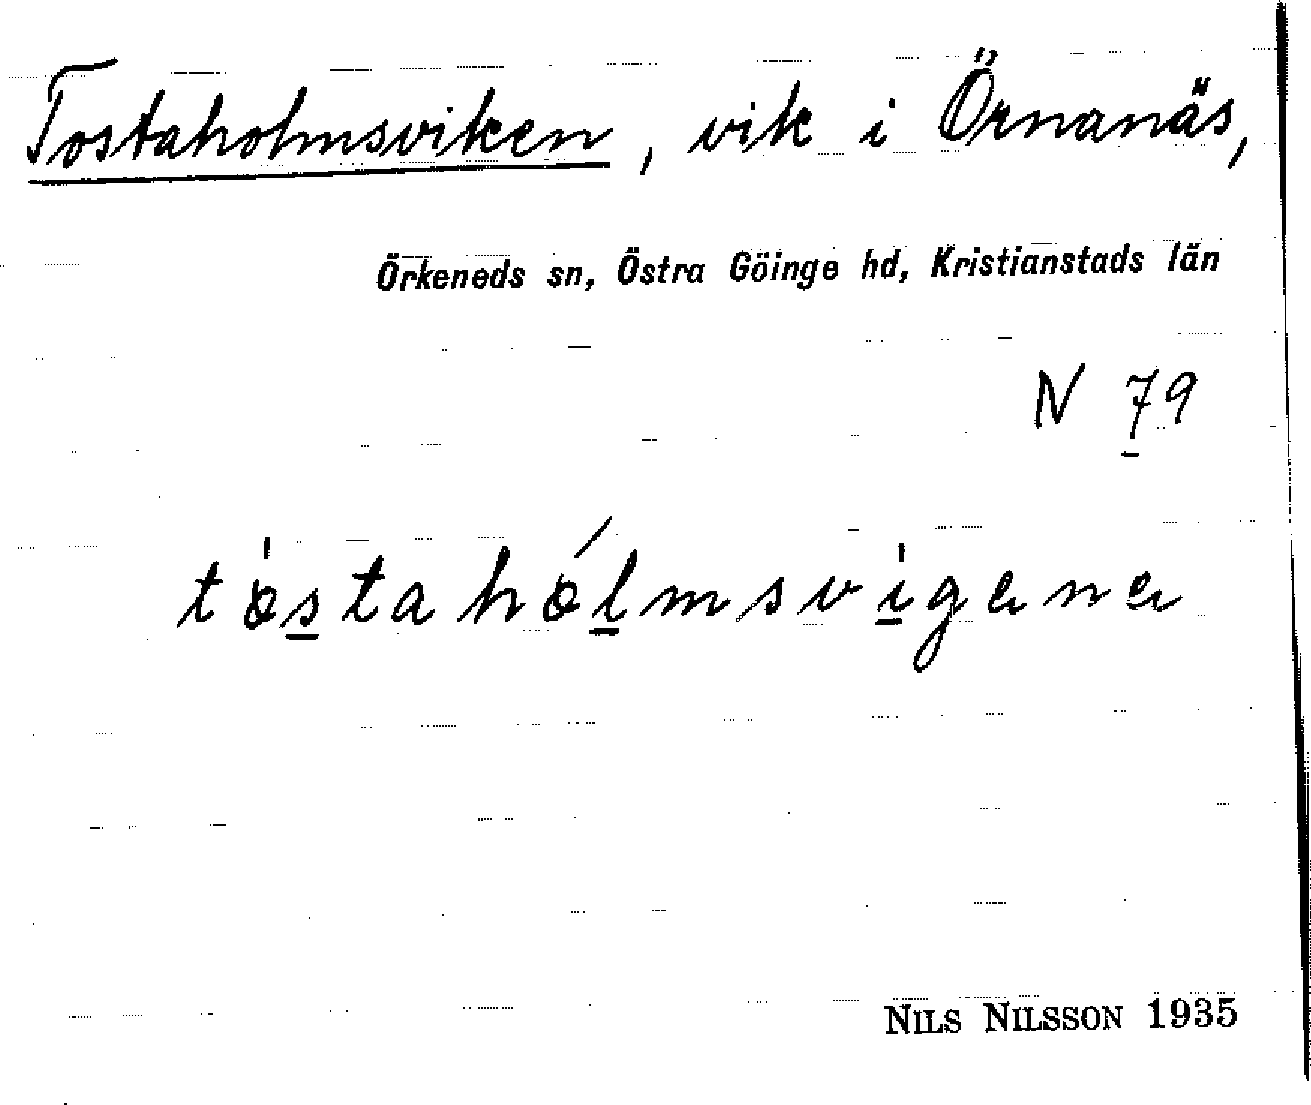 Tostaholmsviken, vik i Örnanäs,
Örkeneds sn, Östra Göinge hd, Kristianstads län
N 79
tòstahólmsvìgene
NILS NILSSON 1935